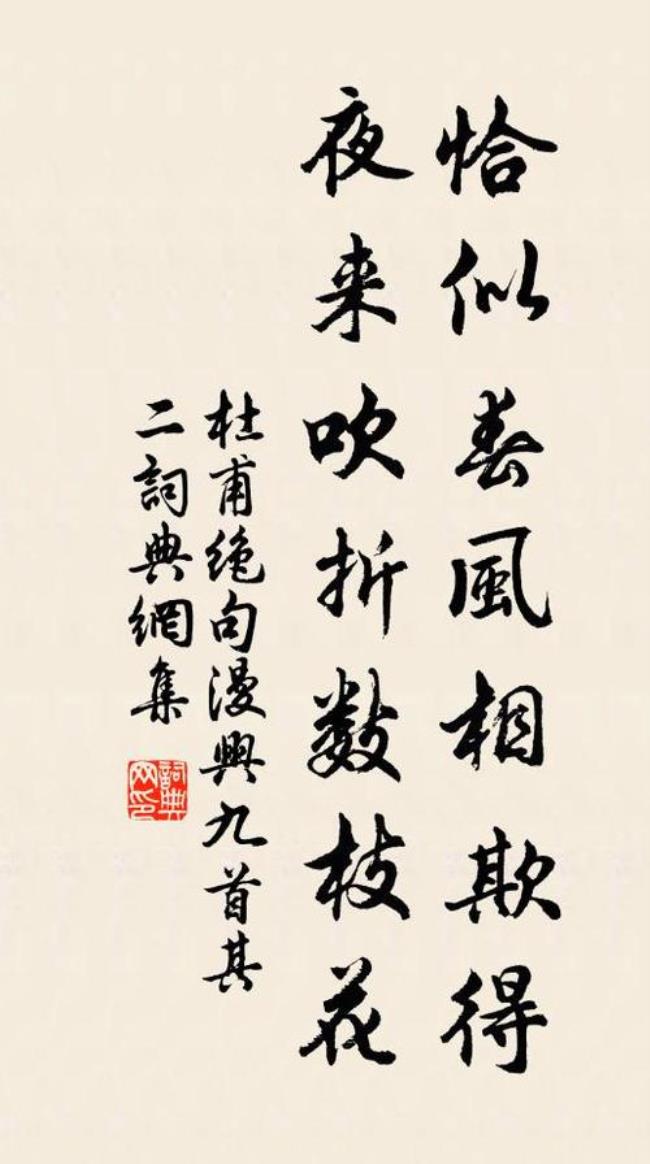 恰似春風相欺得
夜来吹折数枝花
杜甫绝句漫興九首其
二詞典網集
詞典网印